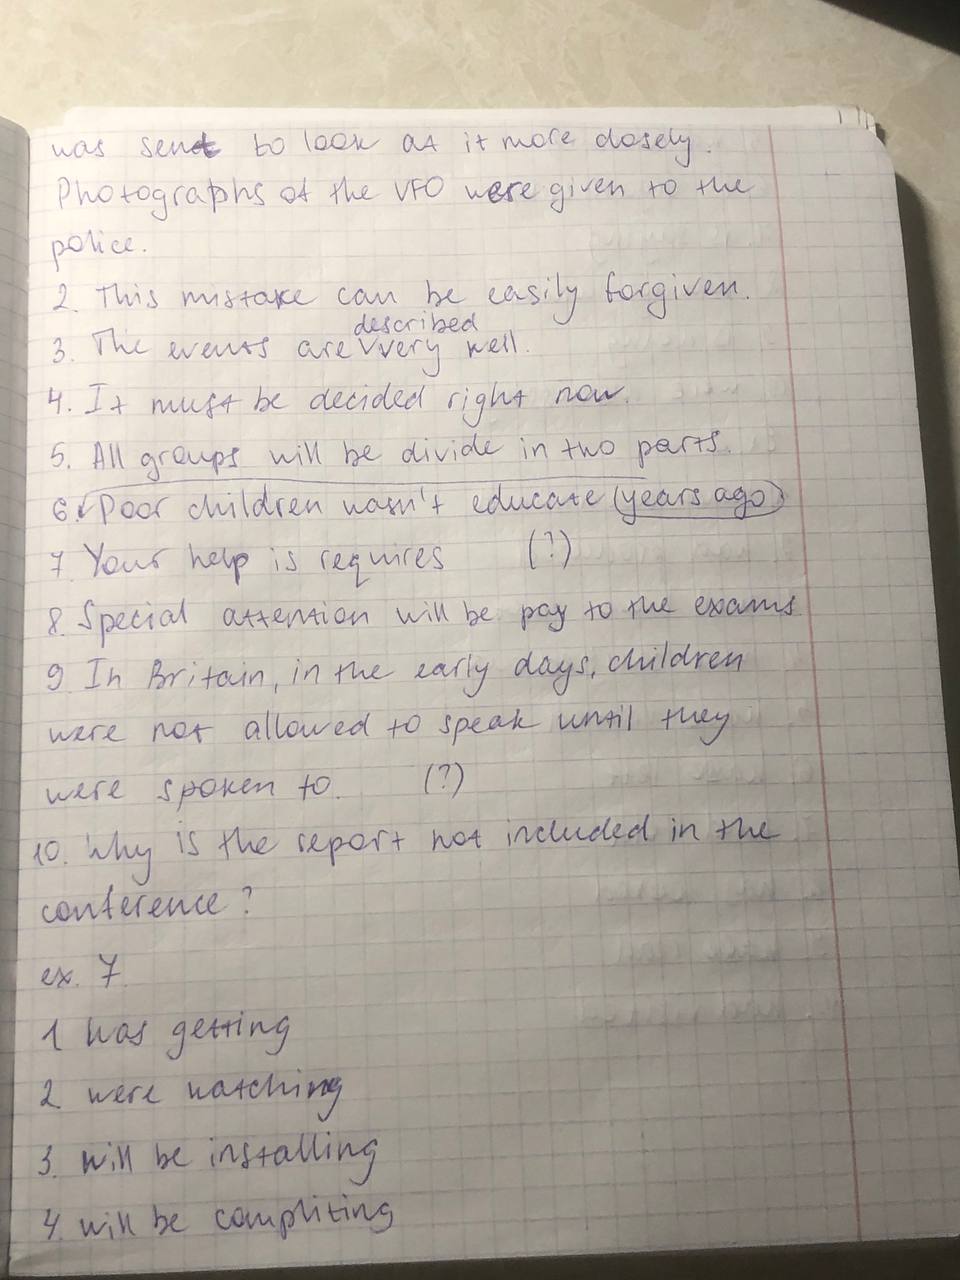 was sent to look at it more closely.
Photographs of the UFO were given to the
police.
2. This mistake can be easily forgiven.
described
3. The events are very well.
4. It must be decided right now.
5. All groups will be divide in two parts.
6. Poor children wasn't educate (years ago)
7. Your help is requires (?)
8. Special attention will be pay to the exams
9. In Britain, in the early days, children
were not allowed to speak until they
were spoken to. (?)
10. Why is the report not included in the
conference?
ex. 7.
1 was getting
2 were watching
3. will be installing
4. will be compliting